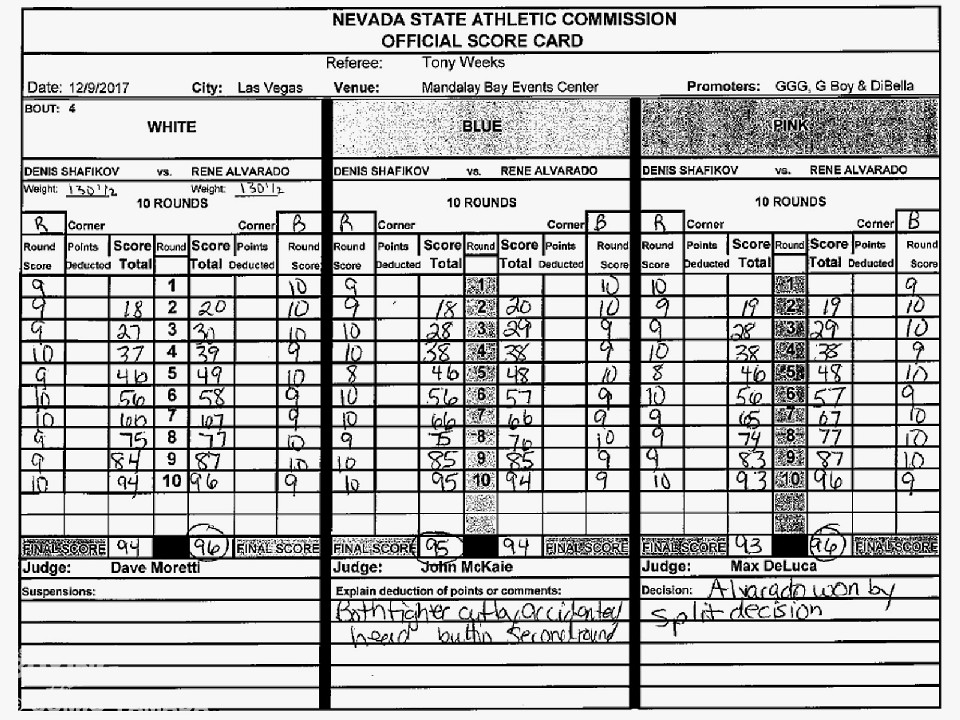 NEVADA STATE ATHLETIC COMMISSION
OFFICIAL SCORE CARD
Referee: Tony Weeks
Date: 12/9/2017 City: Las Vegas Venue: Mandalay Bay Events Center Promoters: GGG, G Boy & DiBella
BOUT: 4
WHITE BLUE PINK
DENIS SHAFIKOV vs. RENE ALVARADO DENIS SHAFIKOV vs. RENE ALVARADO DENIS SHAFIKOV vs. RENE ALVARADO
Weight: 130 1/2 Weight: 130 1/2
10 ROUNDS 10 ROUNDS 10 ROUNDS
R Corner Corner B R Corner Corner B R Corner Corner B
Round Points Score Round Score Points Round Round Points Score Round Score Points Round Round Points Score Round Score Points Round
Score Deducted Total Total Deducted Score Score Deducted Total Total Deducted Score Score Deducted Total Total Deducted Score
9 1 10 9 1 10 10 1 9
9 18 2 20 10 9 18 2 20 10 9 19 2 19 10
9 27 3 30 10 10 28 3 29 9 9 28 3 29 10
10 37 4 39 9 10 38 4 38 9 10 38 4 38 9
9 46 5 49 10 8 46 5 48 10 8 46 5 48 10
10 56 6 58 9 10 56 6 57 9 10 56 6 57 9
10 66 7 67 9 10 66 7 66 9 9 65 7 67 10
9 75 8 77 10 9 75 8 76 10 9 74 8 77 10
9 84 9 87 10 10 85 9 85 9 9 83 9 87 10
10 94 10 96 9 10 95 10 94 9 10 93 10 96 9
FINAL SCORE 94 96 FINAL SCORE FINAL SCORE 95 94 FINAL SCORE FINAL SCORE 93 96 FINAL SCORE
Judge: Dave Moretti Judge: John McKaie Judge: Max DeLuca
Suspensions: Explain deduction of points or comments: Decision: Alvarado won by
Both fighter cut by accidental split decision
head butt in second round